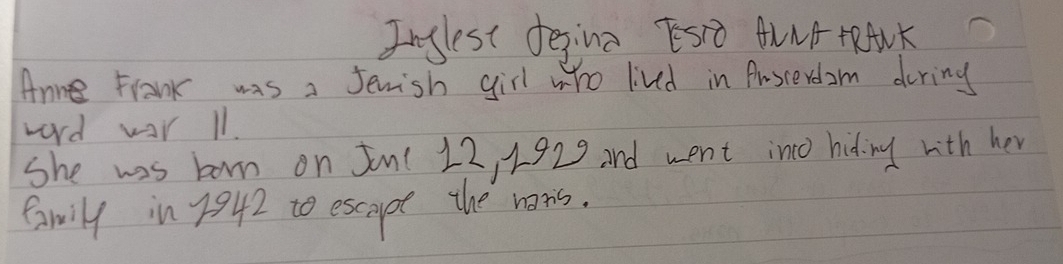 Inglese Regina Testo ANNA FRANK
Anne Frank was a Jewish girl who lived in Amsterdam during
word war II.
She was born on June 12, 1929 and went into hiding with her
family in 1942 to escape the nazis.